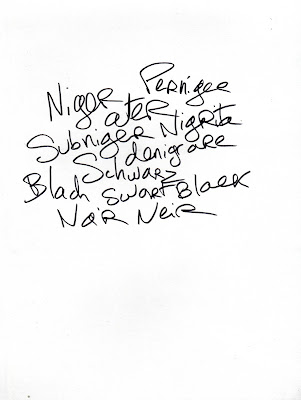 Niger Perniger
ater
Subniger Nigrita
denigrare
Schwarz
Blach swart Black
Noir Neir